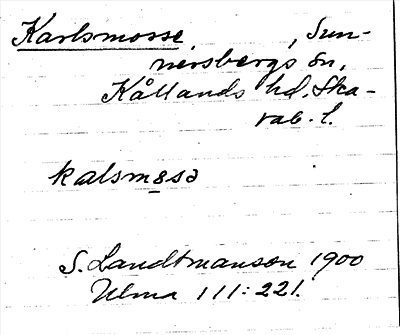 Karlsmosse, Sun-
nersbergs sn,
Kållands hd. Ska-
rab. l.
kalsmåsə
S. Landtmanson 1900
Ulma 111:221.